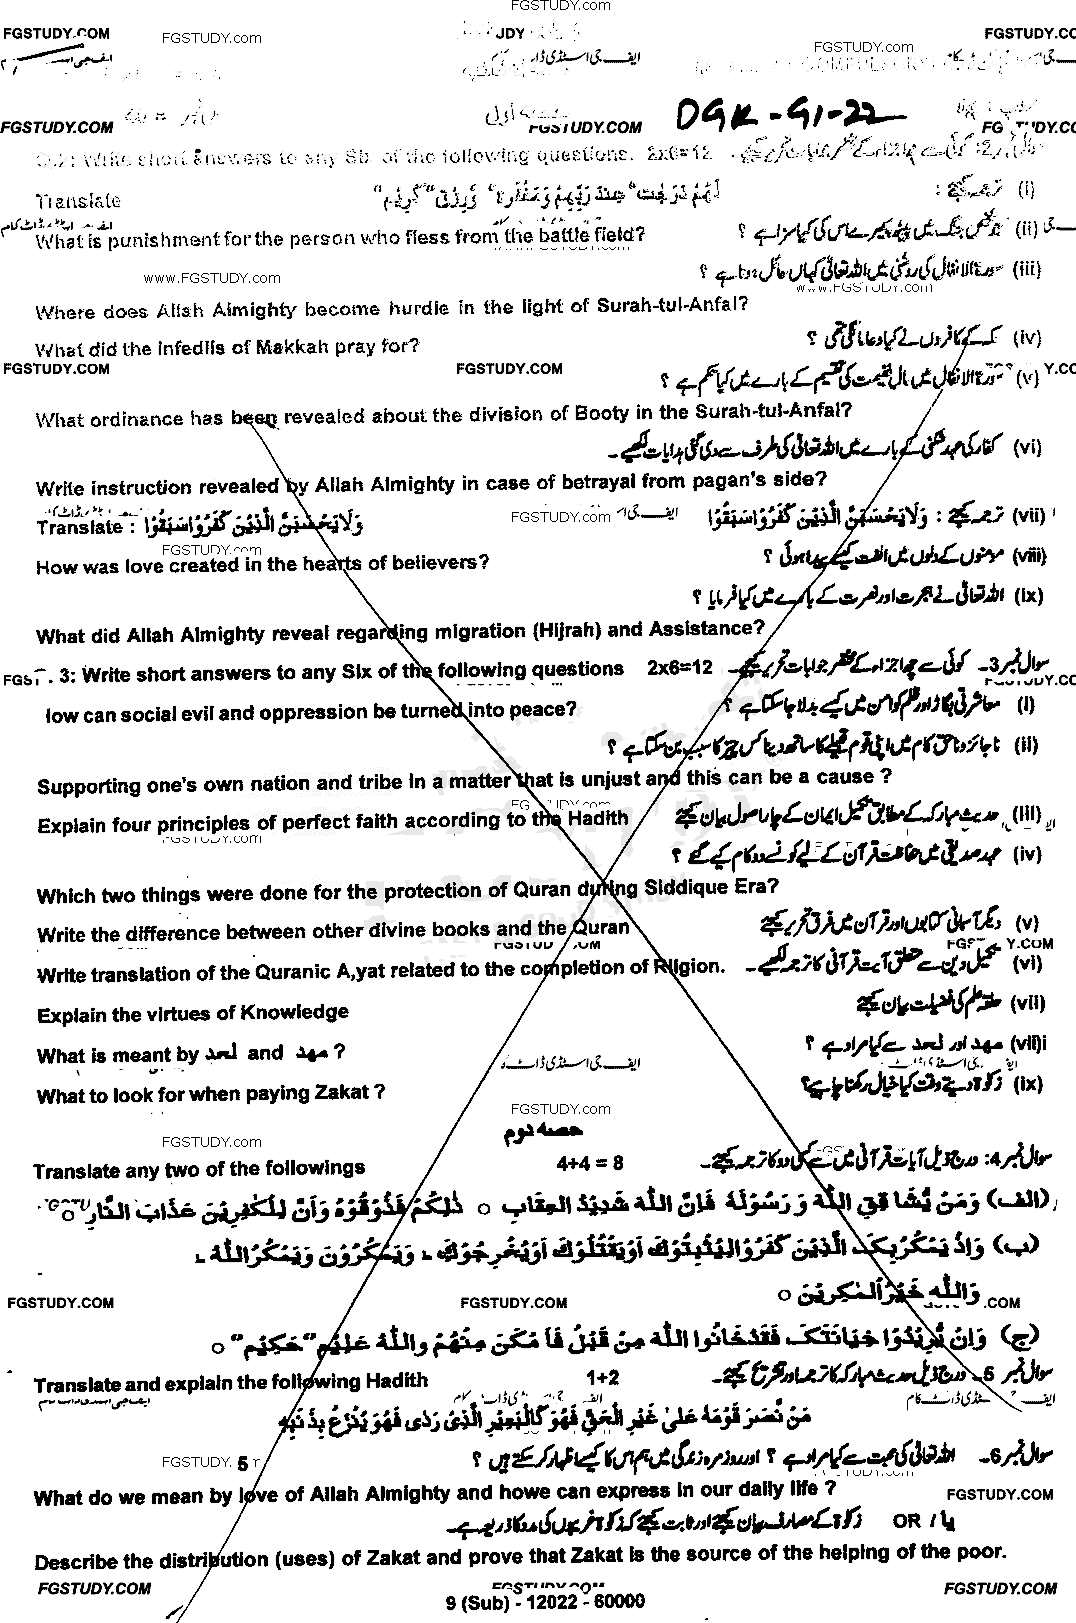 FGSTUDY.com
FGSTUDY.COM FGSTUDY.com JDY FGSTUDY.com FGSTUDY.CO
ایف جی اسٹڈی ڈاٹ
FGSTUDY.COM اول FGSTUDY.COM DGK-G1-22
Q.2: Write short answers to any Six of the following questions. 2x6=12
Translate لَهُمْ دَرَجٰت" عِنْدَ رَبِّهِمْ وَمَغْفِرَة" وَّرِزْق" كَرِيْم" ترجمہ کیجئے : (i)
What is punishment for the person who fless from the battle field? جو شخص جنگ میں پیٹھ پھیرے اس کی کیا سزا ہے ؟ (ii)
www.FGSTUDY.com سورۃ الانفال کی روشنی میں اللہ تعالیٰ کہاں حائل ہوتا ہے ؟ (iii)
www.FGSTUDY.com
Where does Allah Almighty become hurdle in the light of Surah-tul-Anfal?
What did the infedils of Makkah pray for? مکہ کے کافروں نے کیا دعا مانگی تھی ؟ (iv)
FGSTUDY.COM FGSTUDY.COM سورۃ الانفال میں مال غنیمت کی تقسیم کے بارے میں کیا حکم ہے ؟ (v) Y.CO
What ordinance has been revealed about the division of Booty in the Surah-tul-Anfal?
کفار کی عہد شکنی کے بارے میں اللہ تعالیٰ کی طرف سے دی گئی ہدایات لکھیے۔ (vi)
Write instruction revealed by Allah Almighty in case of betrayal from pagan's side?
Translate : وَلَا يَحْسَبَنَّ الَّذِيْنَ كَفَرُوْا سَبَقُوْا FGSTUDY.com ترجمہ کیجئے : وَلَا يَحْسَبَنَّ الَّذِيْنَ كَفَرُوْا سَبَقُوْا (vii)
FGSTUDY.com
How was love created in the hearts of believers? مومنوں کے دلوں میں الفت کیسے پیدا ہوئی ؟ (viii)
اللہ تعالیٰ نے ہجرت اور نصرت کے بارے میں کیا فرمایا ؟ (ix)
What did Allah Almighty reveal regarding migration (Hijrah) and Assistance?
. 3: Write short answers to any Six of the following questions 2x6=12 سوال نمبر 3۔ کوئی سے چھ اجزاء کے مختصر جوابات تحریر کیجئے۔
FGSTUDY.CO
low can social evil and oppression be turned into peace? معاشرتی بگاڑ اور ظلم کو امن میں کیسے بدلا جا سکتا ہے ؟ (i)
ناجائز و ناحق کام میں اپنی قوم قبیلے کا ساتھ دینا کس چیز کا سبب بن سکتا ہے ؟ (ii)
Supporting one's own nation and tribe in a matter that is unjust and this can be a cause ?
Explain four principles of perfect faith according to the Hadith حدیث مبارکہ کے مطابق تکمیل ایمان کے چار اصول بیان کیجئے (iii)
FGSTUDY.com
عہد صدیقی میں حفاظت قرآن کے لیے کونسے دو کام کیے گئے ؟ (iv)
Which two things were done for the protection of Quran during Siddique Era?
Write the difference between other divine books and the Quran دیگر آسمانی کتابوں اور قرآن میں فرق تحریر کیجئے (v)
Write translation of the Quranic A,yat related to the completion of Rligion. تکمیل دین سے متعلق آیت قرآنی کا ترجمہ لکھیے۔ (vi)
Explain the virtues of Knowledge علم کی فضیلت بیان کیجئے (vii)
What is meant by لحد and مهد ? مهد اور لحد سے کیا مراد ہے ؟ (vii)i
ایف جی اسٹڈی ڈاٹ
What to look for when paying Zakat ? زکوٰۃ دیتے وقت کیا خیال رکھنا چاہیے؟ (ix)
FGSTUDY.com
FGSTUDY.com حصہ دوم
Translate any two of the followings 4+4 = 8 سوال نمبر 4: درج ذیل آیات قرآنی میں سے کسی دو کا ترجمہ کیجئے۔
(الف) وَمَنْ يُّشَاقِقِ اللّٰهَ وَرَسُوْلَهٗ فَاِنَّ اللّٰهَ شَدِيْدُ الْعِقَابِ ○ ذٰلِكُمْ فَذُوْقُوْهُ وَاَنَّ لِلْكٰفِرِيْنَ عَذَابَ النَّارِ ○
(ب) وَاِذْ يَمْكُرُ بِكَ الَّذِيْنَ كَفَرُوْا لِيُثْبِتُوْكَ اَوْ يَقْتُلُوْكَ اَوْ يُخْرِجُوْكَ ۔ وَيَمْكُرُوْنَ وَيَمْكُرُ اللّٰهُ ۔
وَاللّٰهُ خَيْرُ الْمٰكِرِيْنَ ○
FGSTUDY.COM FGSTUDY.COM .COM
(ج) وَاِنْ يُّرِيْدُوْا خِيَانَتَكَ فَقَدْ خَانُوا اللّٰهَ مِنْ قَبْلُ فَاَمْكَنَ مِنْهُمْ وَاللّٰهُ عَلِيْم" حَكِيْم" ○
Translate and explain the following Hadith 1+2 سوال نمبر 5۔ درج ذیل حدیث مبارکہ کا ترجمہ اور تشریح کیجئے۔
مَنْ نَّصَرَ قَوْمَهٗ عَلٰى غَيْرِ الْحَقِّ فَهُوَ كَالْبَعِيْرِ الَّذِىْ رَدٰى فَهُوَ يُنْزَعُ بِذَنَبِهٖ
FGSTUDY. 5 سوال نمبر 6۔ اللہ تعالیٰ کی محبت سے کیا مراد ہے ؟ اور روزمرہ زندگی میں ہم اس کا کیسے اظہار کر سکتے ہیں ؟
What do we mean by love of Allah Almighty and howe can express in our daily life ? FGSTUDY.COM
OR / یا زکوٰۃ کے مصارف بیان کیجئے اور ثابت کیجئے کہ زکوٰۃ غریبوں کی مدد کا ذریعہ ہے۔
Describe the distribution (uses) of Zakat and prove that Zakat is the source of the helping of the poor.
FGSTUDY.COM FGSTUDY.COM FGSTUDY.COM
9 (Sub) - 12022 - 60000